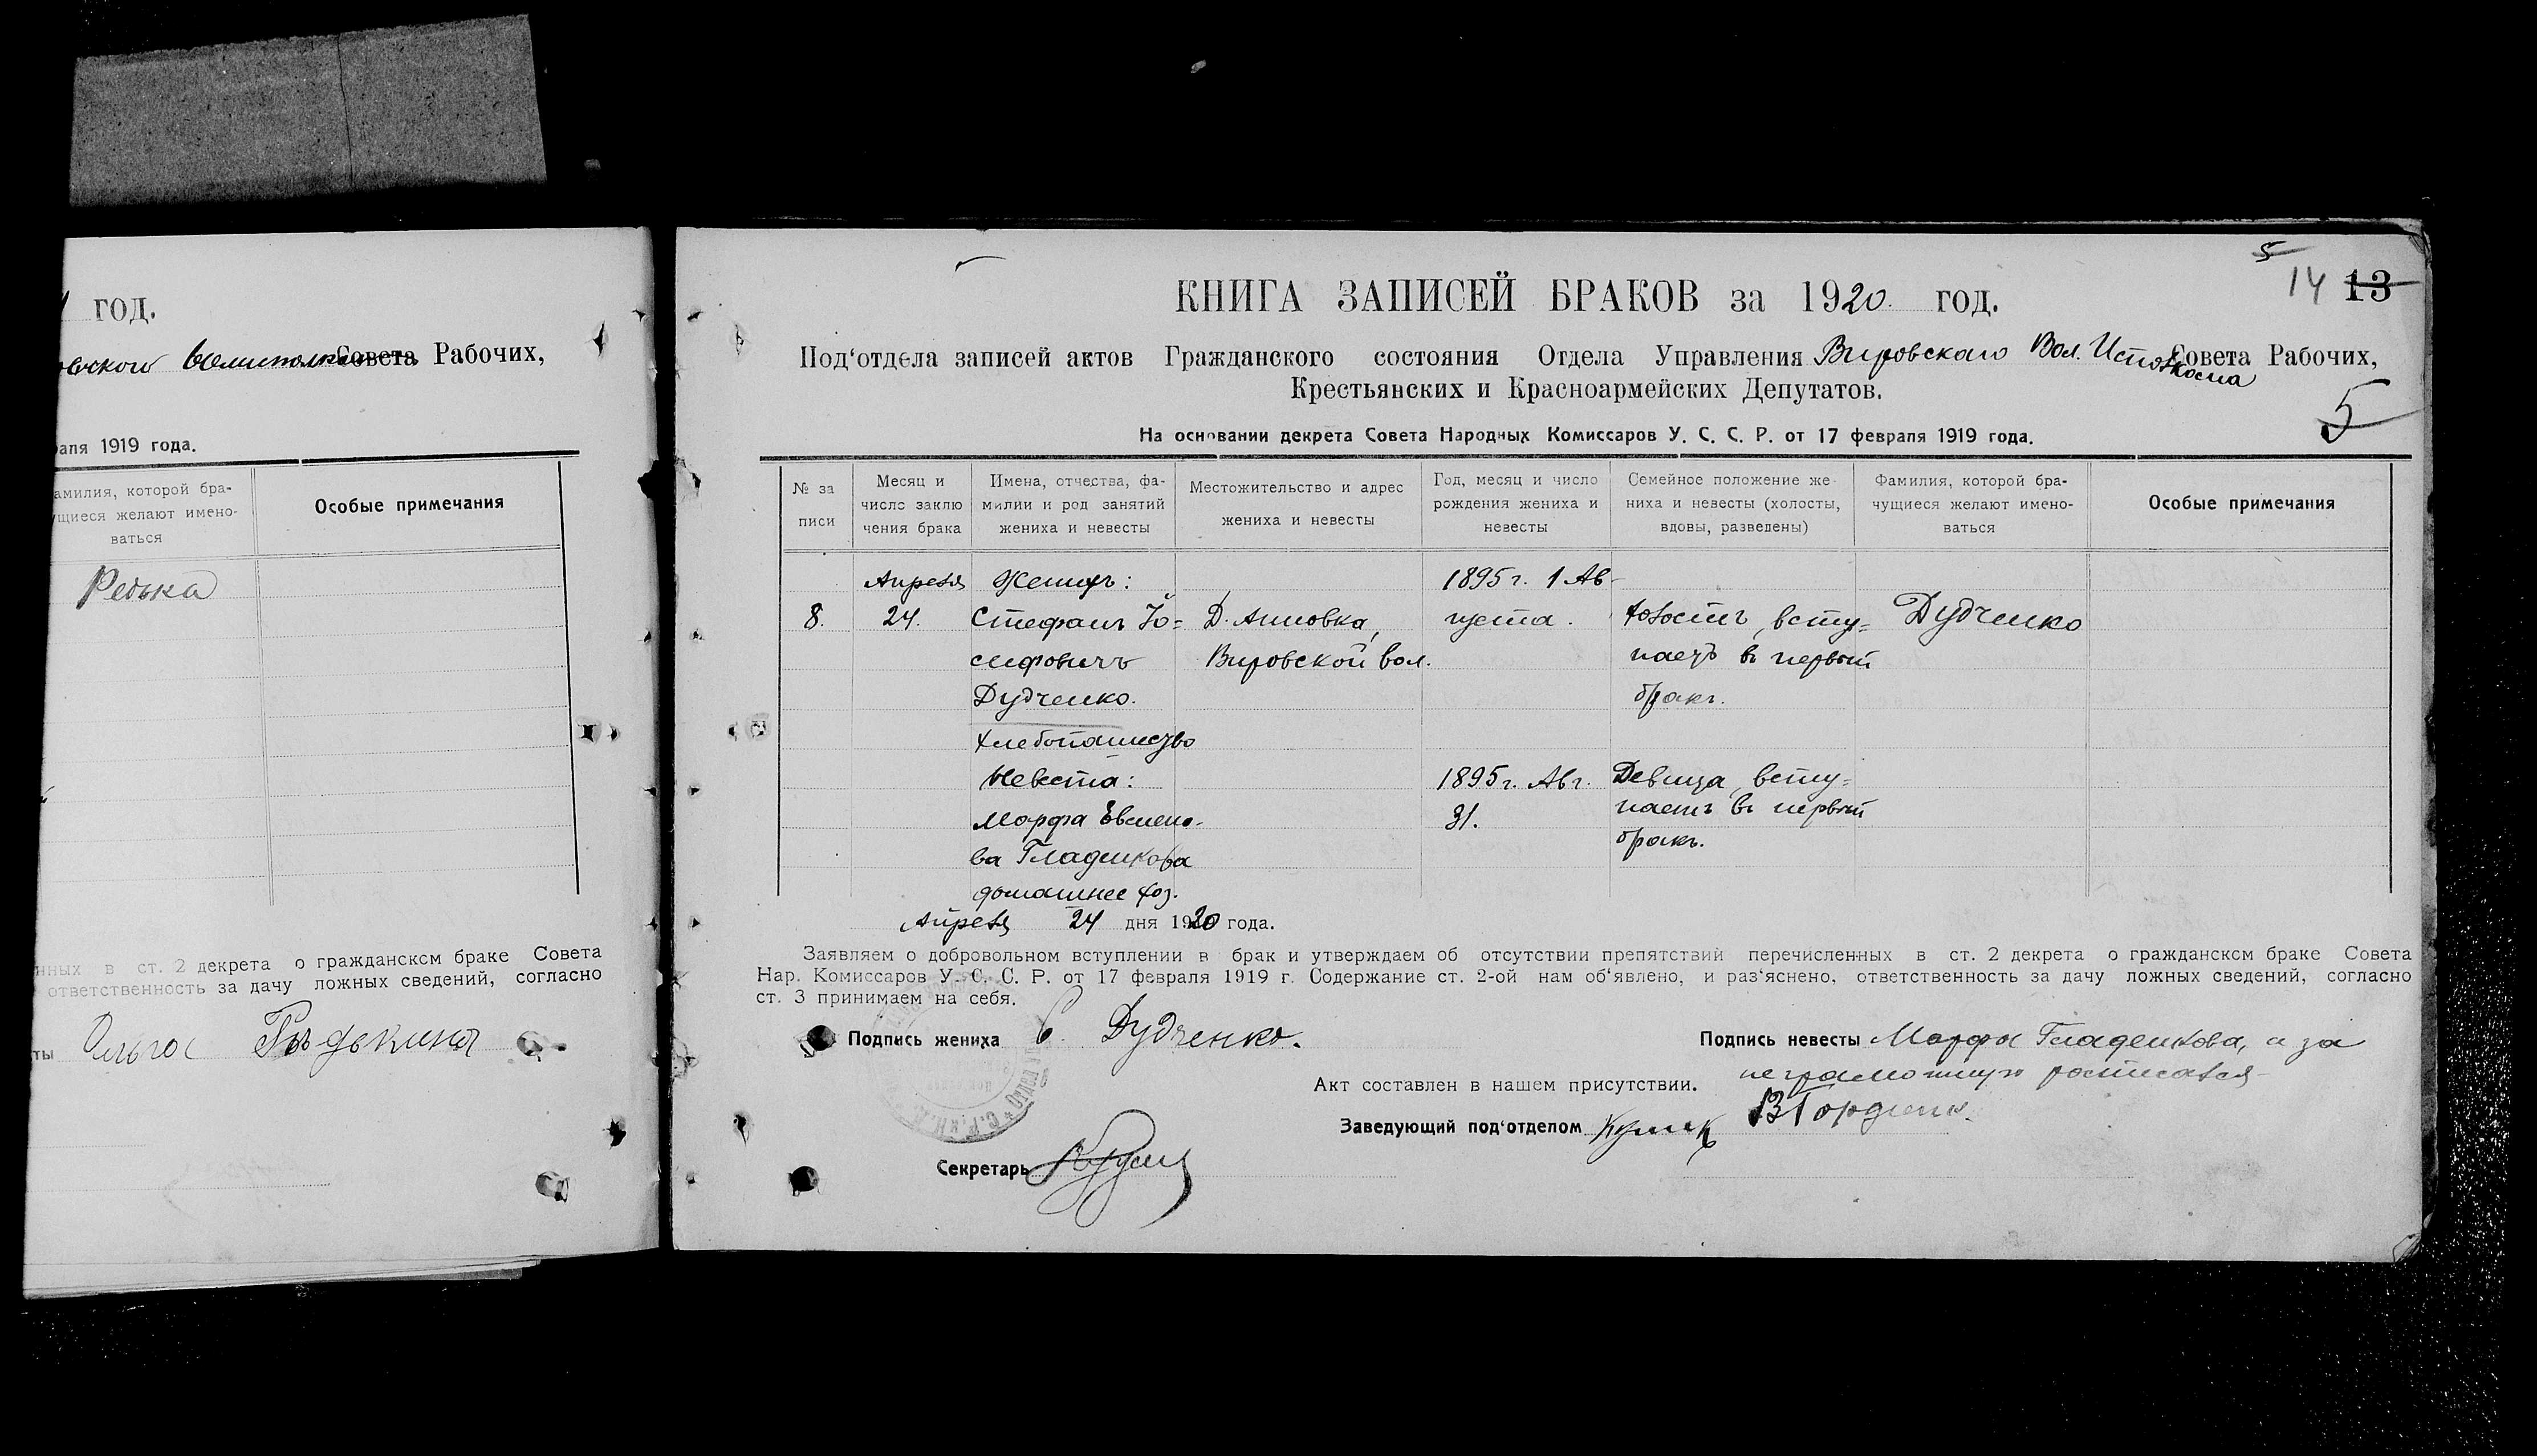 год.
Совета Рабочих,
1919 года.
амилия, которой бра-
ущиеся желают имено-
ваться
Особые примечания
Редька
в ст. 2 декрета о гражданском браке Совета
ответственность за дачу ложных сведений, согласно
ты Ольга Редькина
5
14 13
КНИГА ЗАПИСЕЙ БРАКОВ за 1920 год.
Под‘отдела записей актов Гражданского состояния Отдела Управления Вировского Вол. Исполкома Совета Рабочих,
Крестьянских и Красноармейских Депутатов.
5
На основании декрета Совета Народных Комиссаров У. С. С. Р. от 17 февраля 1919 года.
№ за
писи
Месяц и
число заклю
чения брака
Имена, отчества, фа-
милии и род занятий
жениха и невесты
Местожительство и адрес
жениха и невесты
Год, месяц и число
рождения жениха и
невесты
Семейное положение же-
ниха и невесты (холосты,
вдовы, разведены)
Фамилия, которой бра-
чущиеся желают имено-
ваться
Особые примечания
8.
Апреля
24.
Жених:
Стефанъ Іо=
сифовичъ
Дудченко.
хлебопашество
Невеста:
Марфа Евмено-
ва Гладенкова
домашнее хоз.
Д. Анновка,
Вировской вол.
1895 г. 1 Ав-
густа.
1895 г. Авг.
31.
холостъ, всту=
паетъ въ первый
бракъ.
Девица, всту=
паетъ въ первый
бракъ.
Дудченко
Апреля 24 дня 1920 года.
Заявляем о добровольном вступлении в брак и утверждаем об отсутствии препятствий перечисленных в ст. 2 декрета о гражданском браке Совета
Нар. Комиссаров У. С. С. Р. от 17 февраля 1919 г. Содержание ст. 2-ой нам об‘явлено, и раз‘яснено, ответственность за дачу ложных сведений, согласно
ст. 3 принимаем на себя.
Подпись жениха С. Дудченко.
Подпись невесты Марфа Гладенкова, а за
неграмотную росписался
Акт составлен в нашем присутствии.
Заведующий под‘отделом
Секретарь